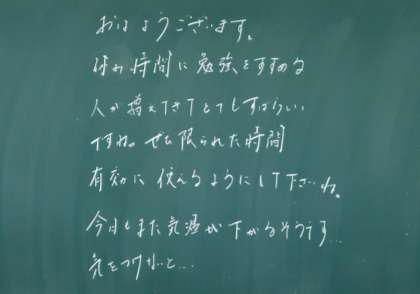 おはようございます。
休み時間に勉強をすすめる
人が増えてきてとてもすばらしい
ですね。ぜひ限られた時間
有効に使えるようにして下さいね。
今日もまた気温が下がるそうです…
気をつけないと…